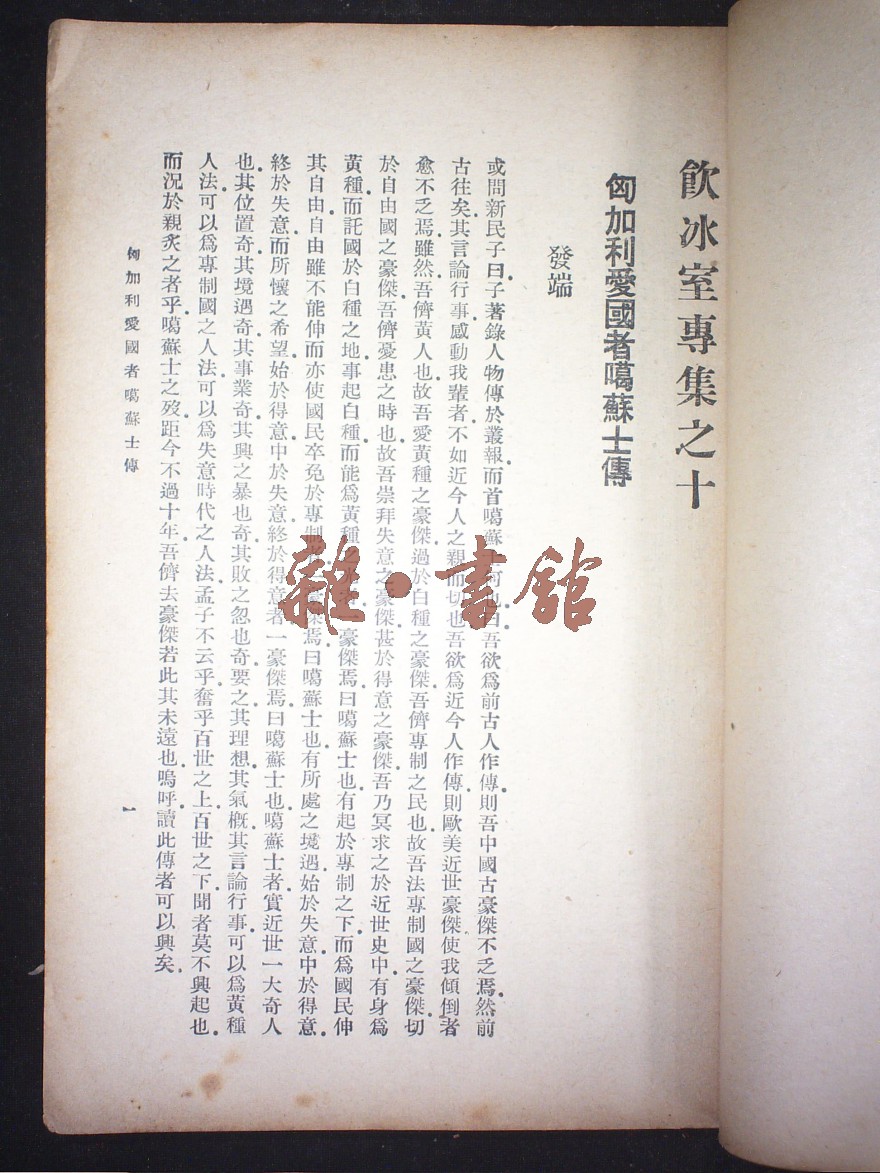 飮冰室專集之十
匈加利愛國者噶蘇士傳
發端
或問新民子曰子著錄人物傳於叢報而首噶蘇士何也曰吾欲爲前古人作傳則吾中國古豪傑不乏焉然前
古往矣其言論行事感動我輩者不如近今人之親而切也吾欲爲近今人作傳則歐美近世豪傑使我傾倒者
愈不乏焉雖然吾儕黃人也故吾愛黃種之豪傑過於白種之豪傑吾儕專制之民也故吾法專制國之豪傑切
於自由國之豪傑吾儕憂患之時也故吾崇拜失意之豪傑甚於得意之豪傑吾乃冥求之於近世史中有身爲
黃種而託國於白種之地事起白種而能爲黃種一豪傑焉曰噶蘇士也有起於專制之下而爲國民伸
其自由自由雖不能伸而亦使國民卒免於專制者豪傑焉曰噶蘇士也有所處之境遇始於失意中於得意
終於失意而所懷之希望始於得意中於失意終於得意者一豪傑焉曰噶蘇士也噶蘇士者實近世一大奇人
也其位置奇其境遇奇其事業奇其興之暴也奇其敗之忽也奇要之其理想其氣概其言論行事可以爲黃種
人法可以爲專制國之人法可以爲失意時代之人法孟子不云乎奮乎百世之上百世之下聞者莫不興起也
而況於親炙之者乎噶蘇士之歿距今不過十年吾儕去豪傑若此其未遠也嗚呼讀此傳者可以興矣
匈加利愛國者噶蘇士傳
一
雜·書館